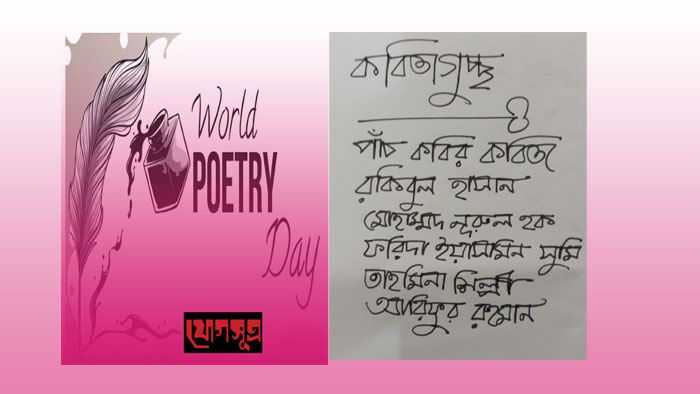 World
POETRY
Day
যোগসূত্র
কবিতাগুচ্ছ
পাঁচ কবির কবিতা
রকিবুল হাসান
মোহাম্মদ নূরুল হক
ফরিদা ইয়াসমিন সুমি
তাহমিনা শিল্পী
আরিফুর রহমান